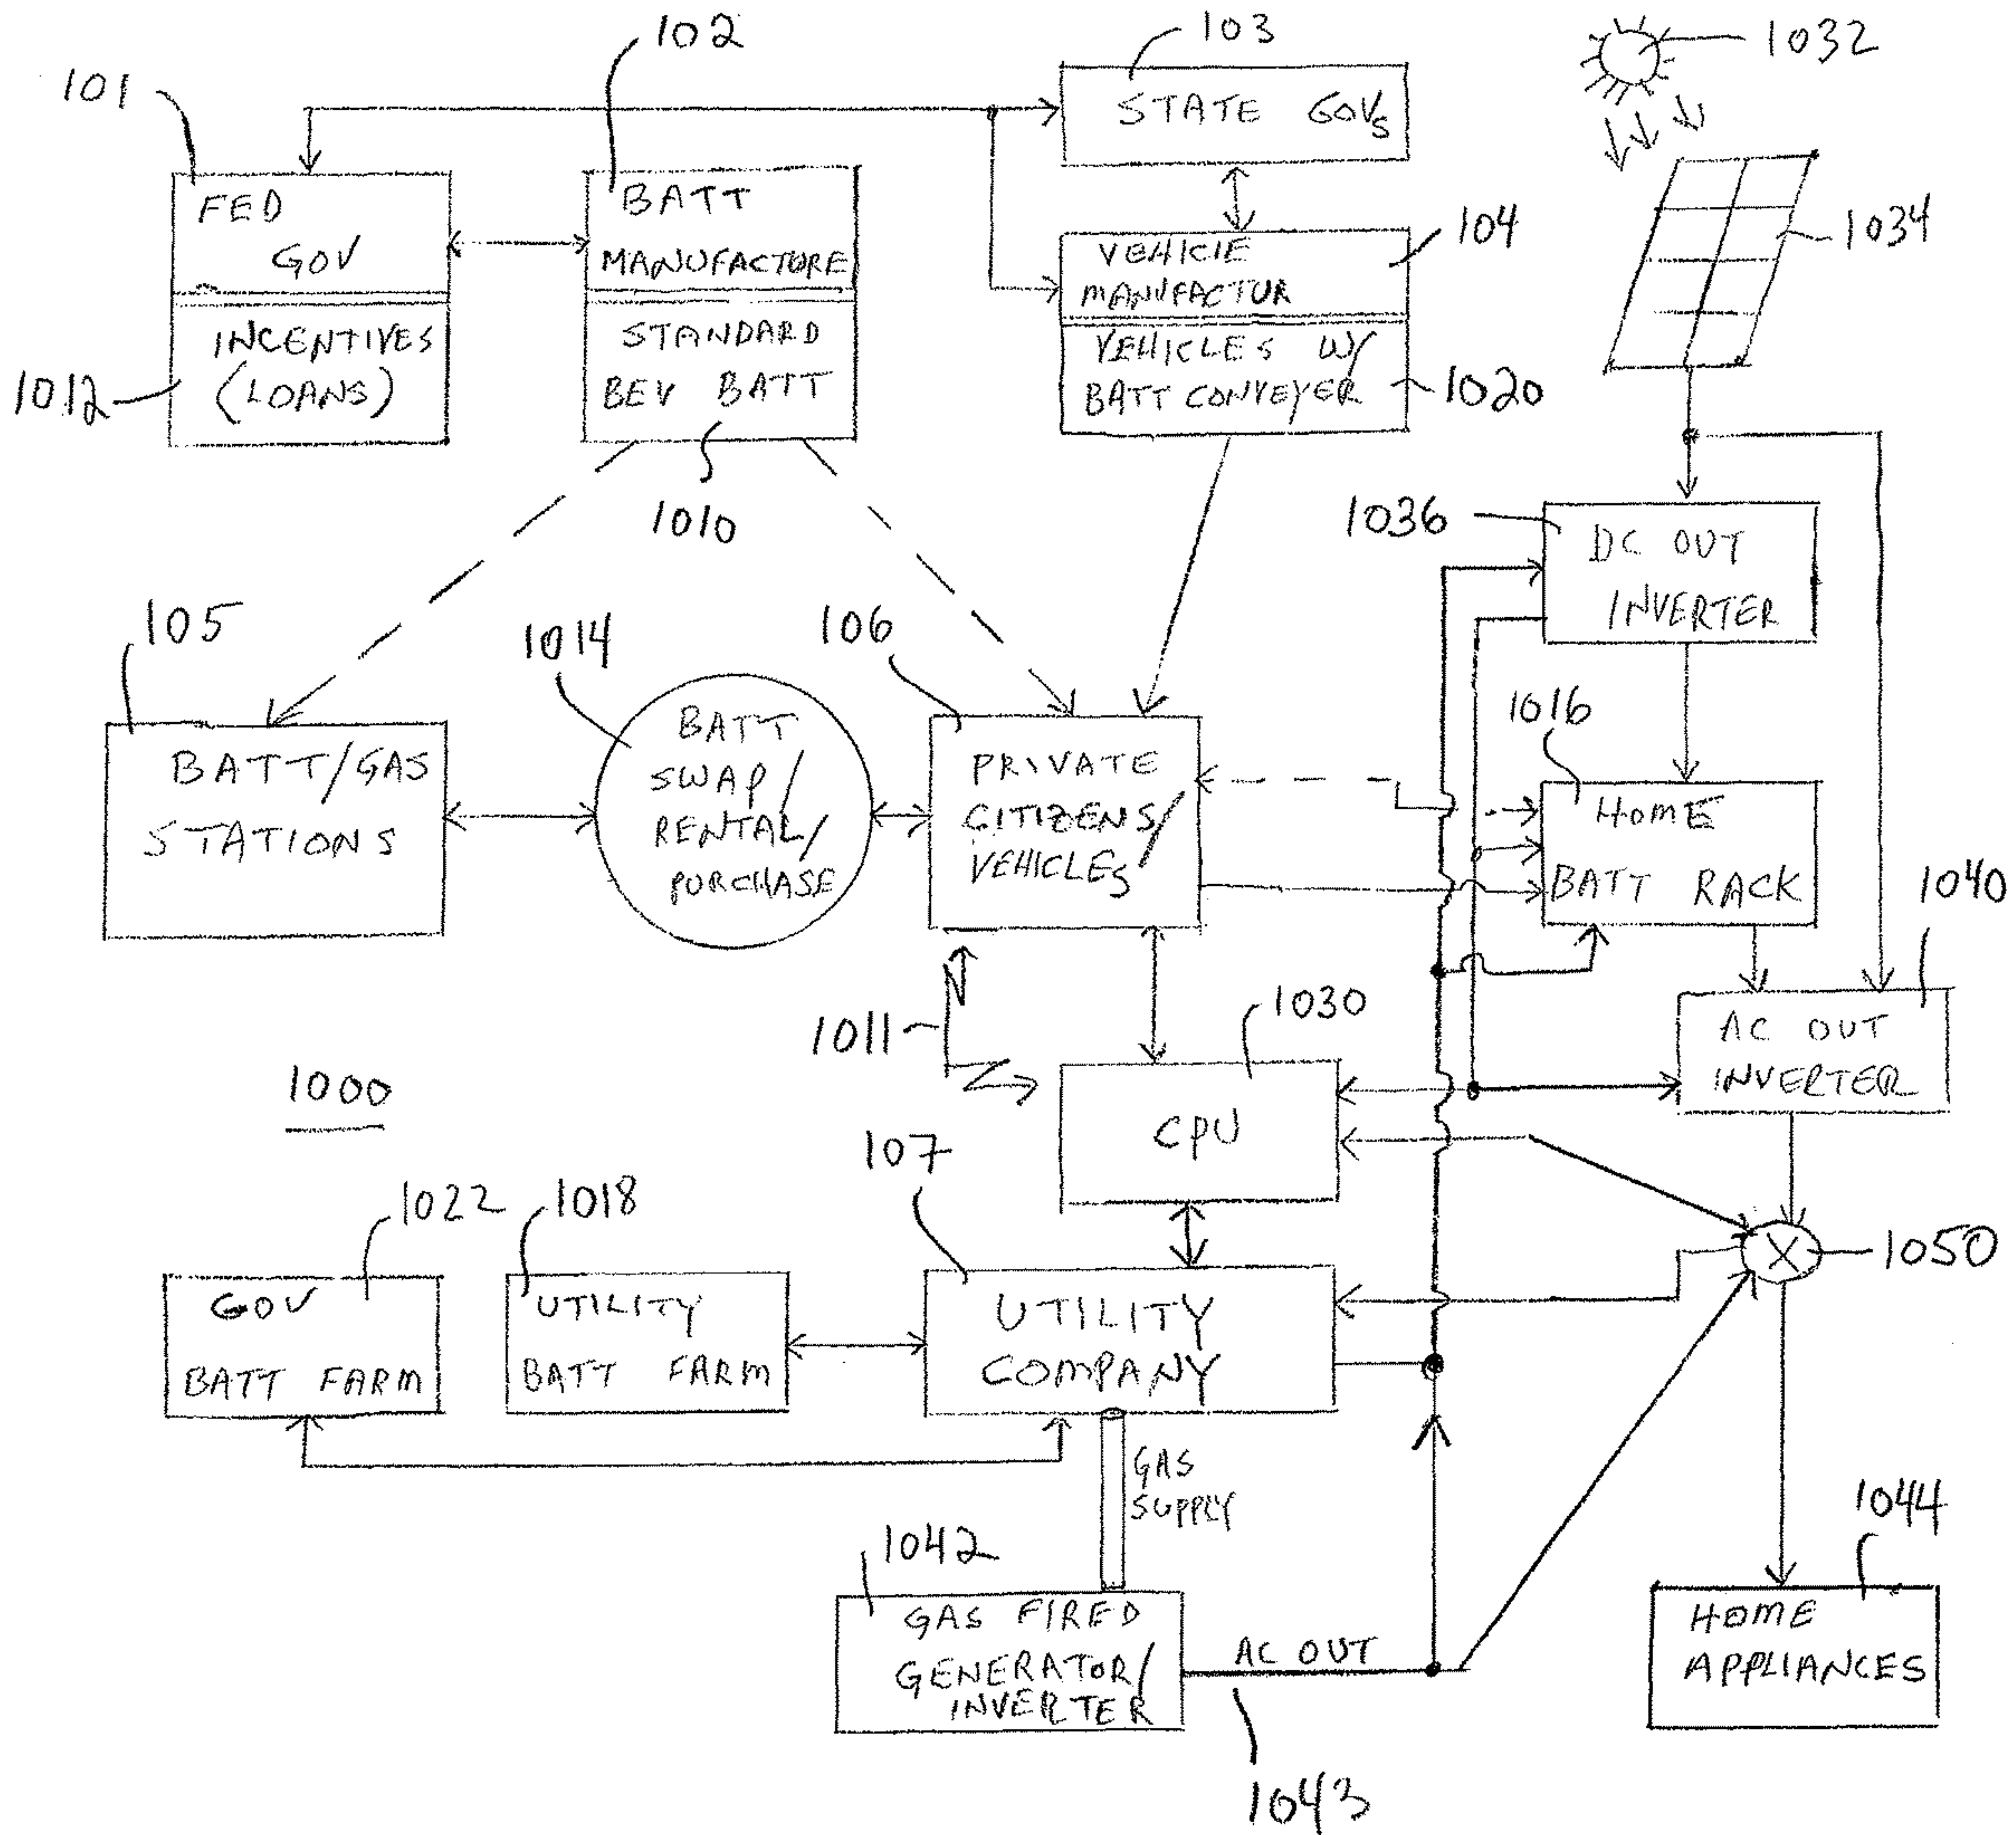 102
103
1032
101
STATE GOVS
FED
GOV
BATT
MANUFACTURE
104
1034
VEHICLE
MANUFACTUR
INCENTIVES
(LOANS)
1012
STANDARD
BEV BATT
VEHICLES W/
BATT CONVEYER
1020
1010
1036
DC OUT
INVERTER
105
1014
106
1016
BATT/GAS
STATIONS
BATT
SWAP/
RENTAL/
PURCHASE
PRIVATE
CITIZENS/
VEHICLES
HOME
BATT RACK
1040
1011
1030
AC OUT
INVERTER
1000
CPU
107
1022
1018
1050
GOV
BATT FARM
UTILITY
BATT FARM
UTILITY
COMPANY
X
GAS
SUPPLY
1042
1044
GAS FIRED
GENERATOR/
INVERTER
AC OUT
HOME
APPLIANCES
1043